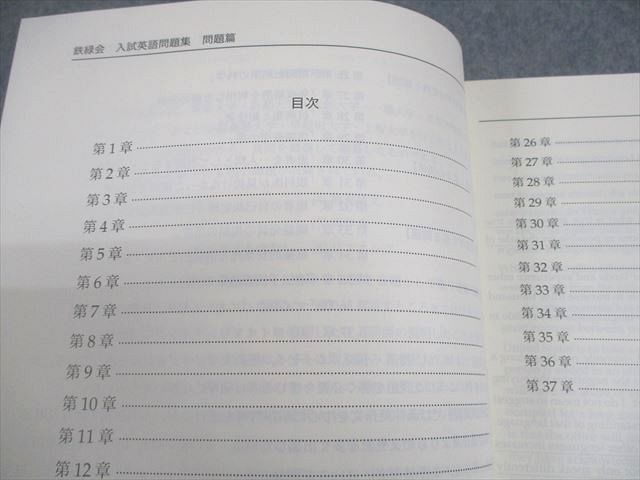 鉄緑会 入試英語問題集 問題篇
目次
第1章
第2章
第3章
第4章
第5章
第6章
第7章
第8章
第9章
第10章
第11章
第12章
第26章
第27章
第28章
第29章
第30章
第31章
第32章
第33章
第34章
第35章
第36章
第37章